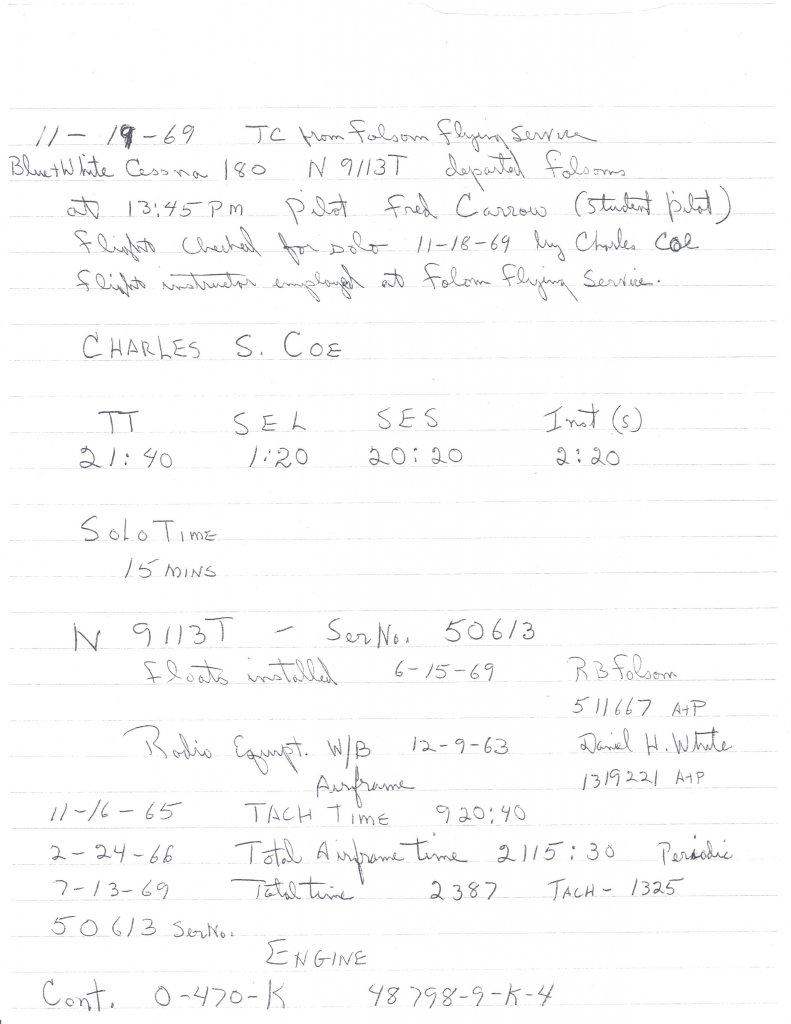 11-19-69 TC from Folsom Flying Service
Blue+White Cessna 180 N 9113T departed Folsoms
at 13:45 PM pilot Fred Carrow (student pilot)
flight checked for solo 11-18-69 by Charles Coe
flight instructor employed at Folsom Flying Service.
CHARLES S. COE
TT SEL SES Inst (s)
21:40 1:20 20:20 2:20
SOLO TIME
15 MINS
N 9113T - Ser No. 50613
Floats installed 6-15-69 RB Folsom
511667 A+P
Radio Equipt. W/B 12-9-63 Daniel H. White
Airframe 1319221 A+P
11-16-65 TACH TIME 920:40
2-24-66 Total Airframe time 2115:30 Periodic
7-13-69 Total time 2387 TACH- 1325
50613 Ser No.
ENGINE
Cont. O-470-K 48798-9-K-4